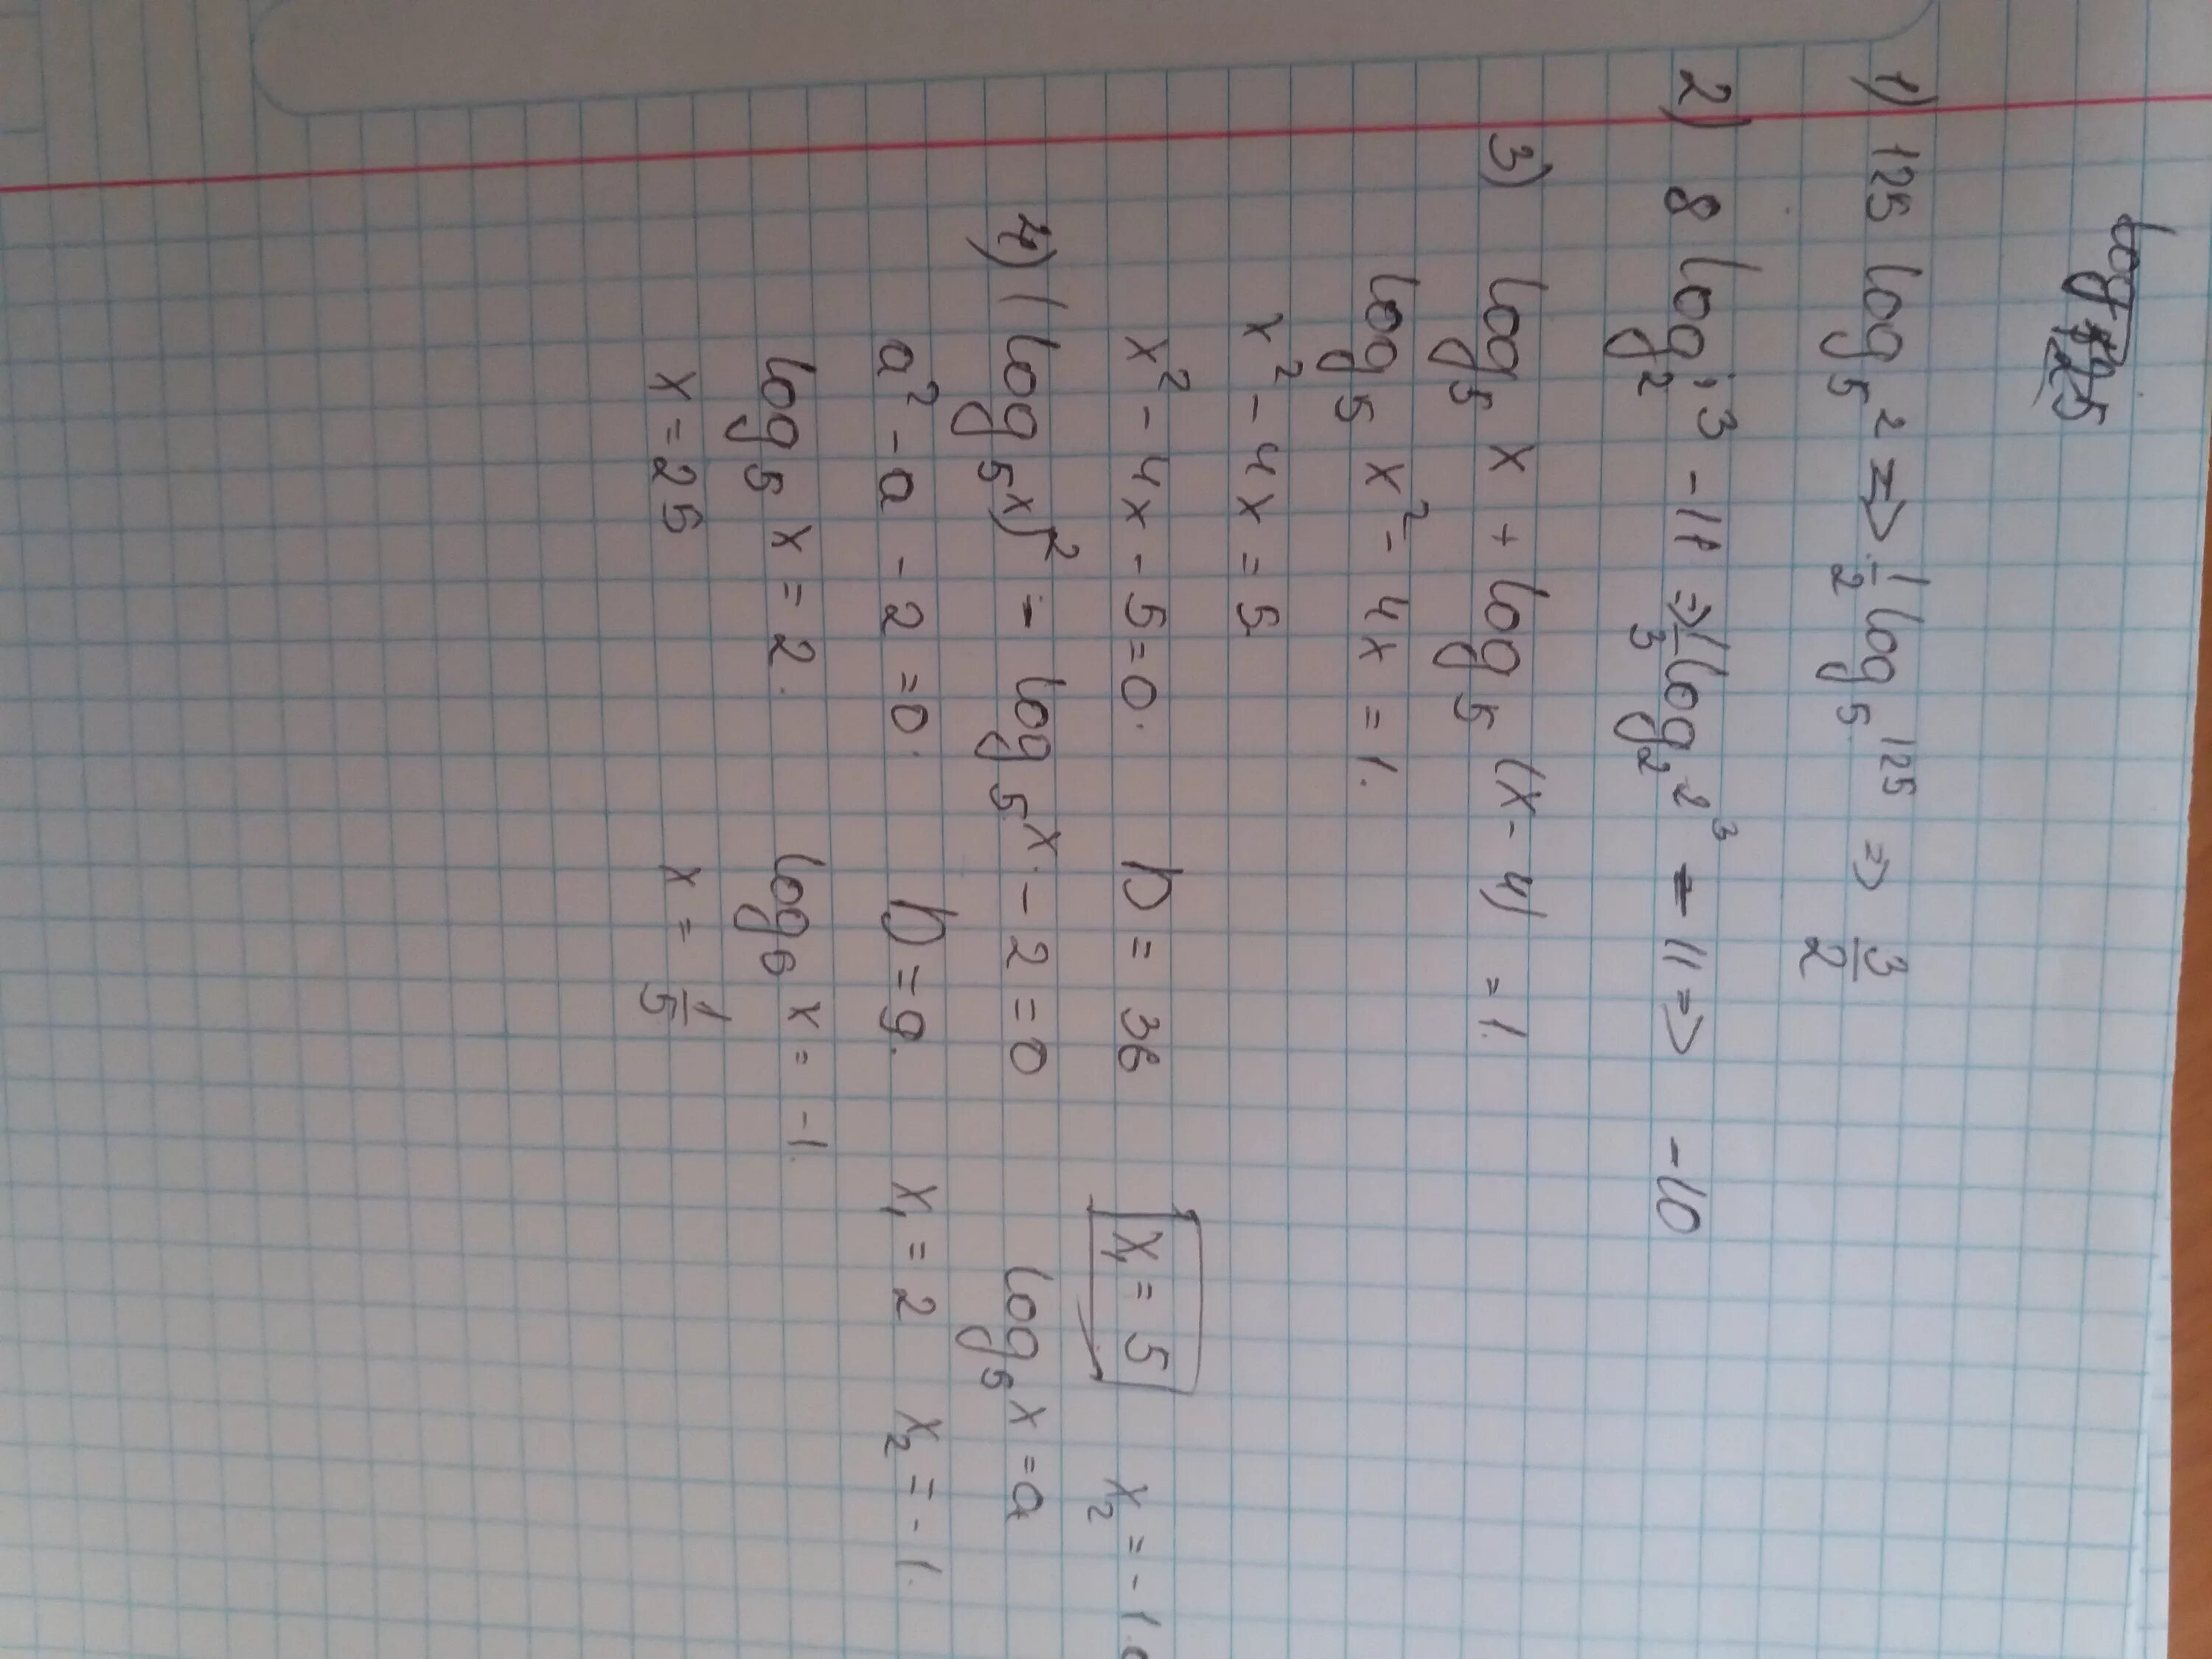 1) 125 log₅ 2 => 1/2 log₅ 125 => 3/2
2) 8 log₂ 3 - 11 => 1/3 log₂ 2³ - 11 => -10
3) log₅ x + log₅ (x - 4) = 1.
log₅ x² - 4x = 1.
x² - 4x = 5
x² - 4x - 5 = 0. D = 36 x₁ = 5 x₂ = -1.
4) (log₅ x)² - log₅ x - 2 = 0 log₅ x = a
a² - a - 2 = 0. D = 9. x₁ = 2 x₂ = -1.
log₅ x = 2. log₅ x = -1.
x = 25 x = 1/5